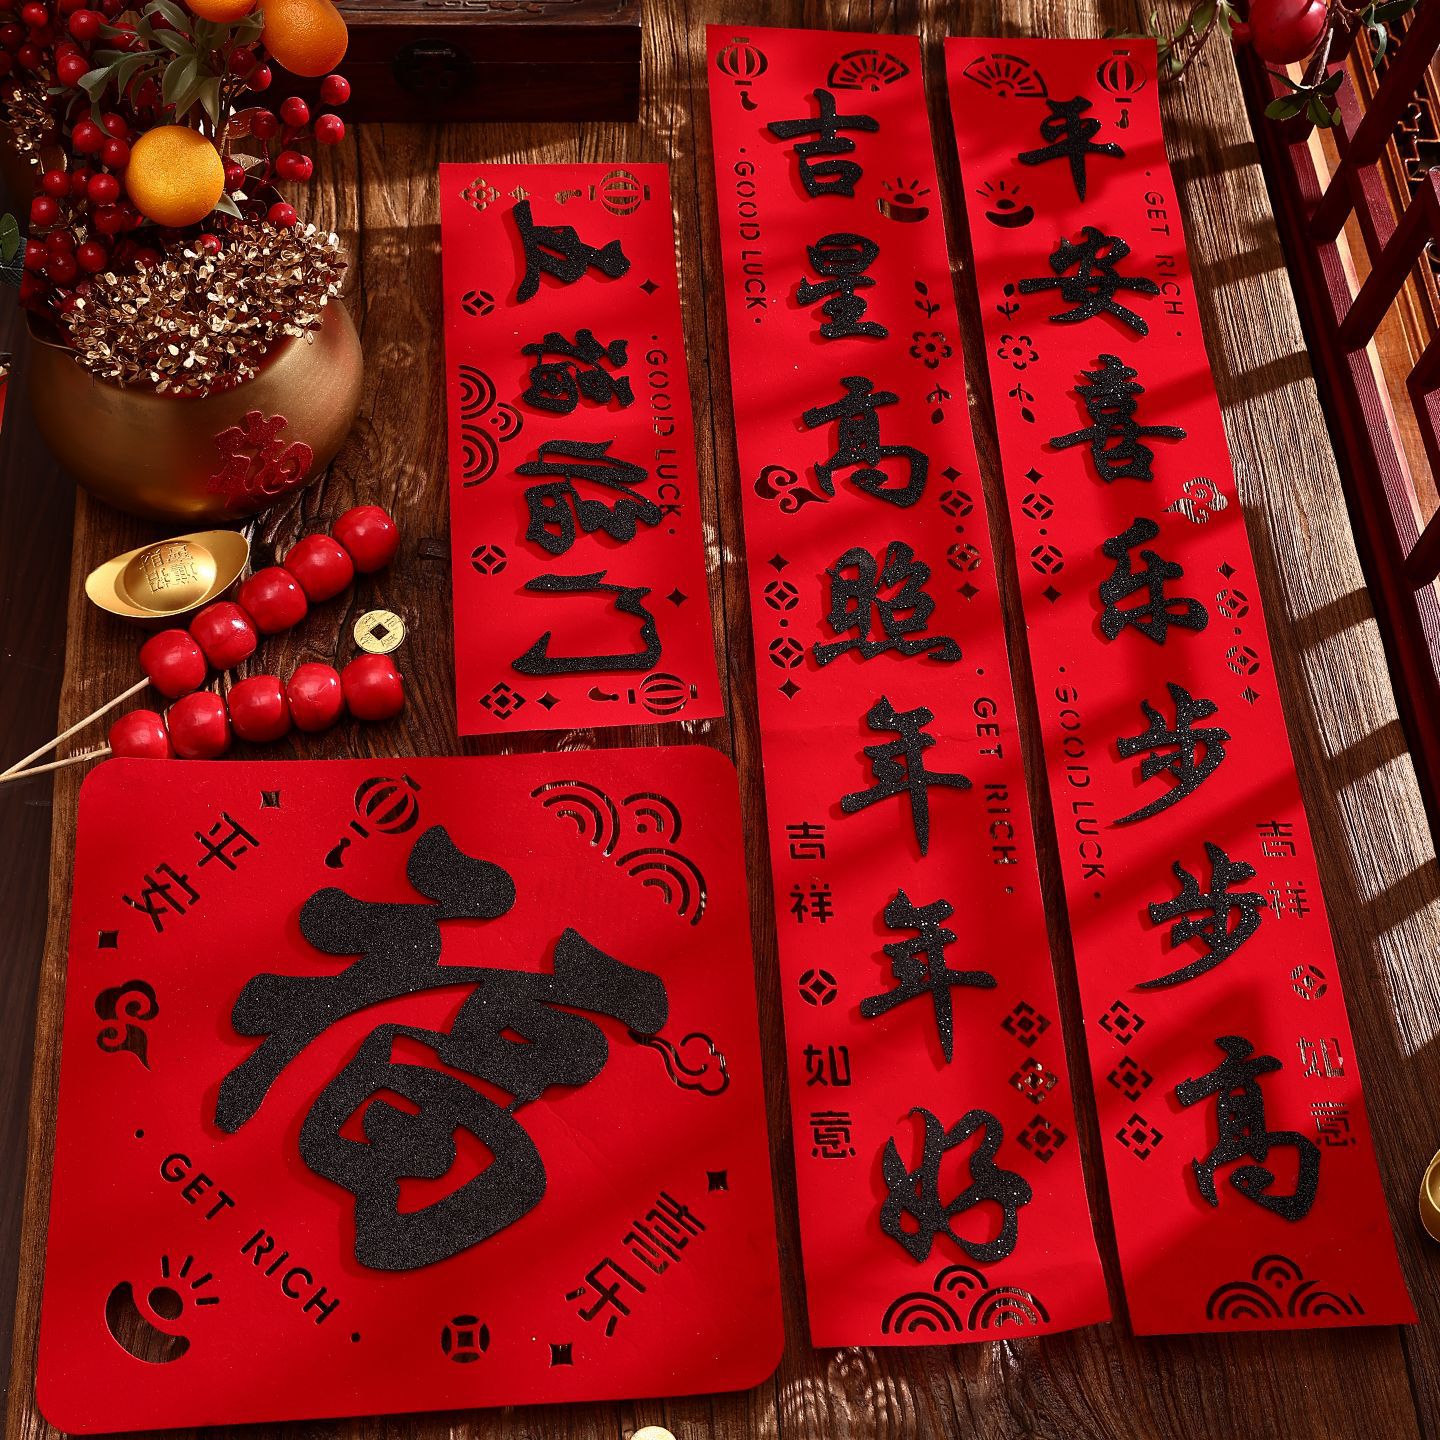 平安喜乐步步高
GET RICH
GOOD LUCK
吉祥
如意
吉星高照年年好
GOOD LUCK
GET RICH
吉祥
如意
五福临门
GOOD LUCK
福
平安
喜乐
GET RICH